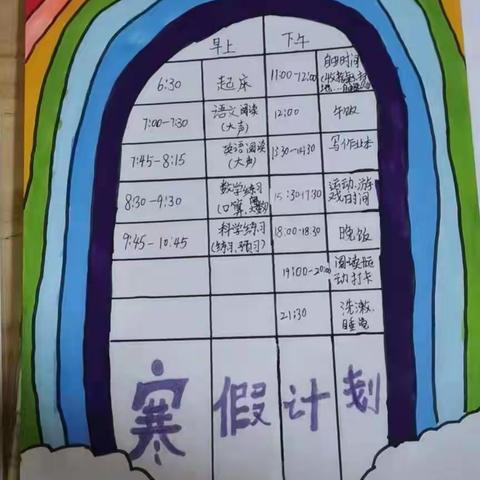 早上 下午
6:30 起床 11:00-12:00 自由时间
7:00-7:30 语文阅读 12:00 午饭
(大声)
7:45-8:15 英语阅读 13:30-14:30 写作业本
(大声)
8:30-9:30 数学练习 15:30-17:30 运动、游
(口算, 戏时间
9:45-10:45 科学练习 18:00-18:30 晚饭
(练习、预习)
19:00-20:00 阅读运
动打卡
21:30 洗漱、
睡觉
寒假计划